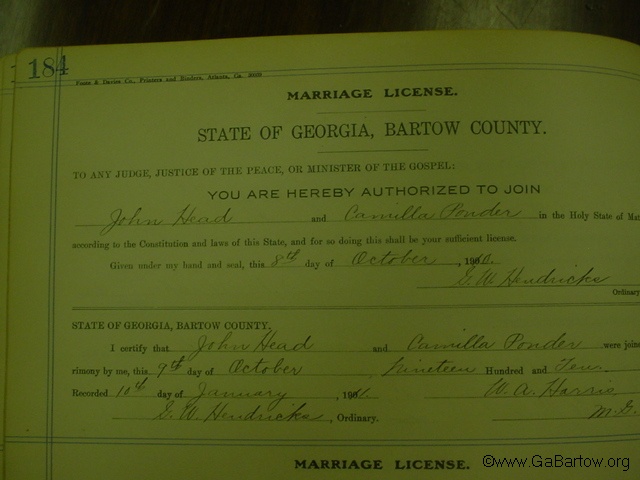 184
Foote & Davies Co., Printers and Binders, Atlanta, Ga.
MARRIAGE LICENSE.
STATE OF GEORGIA, BARTOW COUNTY.
TO ANY JUDGE, JUSTICE OF THE PEACE, OR MINISTER OF THE GOSPEL:
YOU ARE HEREBY AUTHORIZED TO JOIN
John Head and Camilla Ponder in the Holy State of Mat
according to the Constitution and laws of this State, and for so doing this shall be your sufficient license.
Given under my hand and seal, this 8th day of October, 1910.
G. W. Hendricks
Ordinary
STATE OF GEORGIA, BARTOW COUNTY.
I certify that John Head and Camilla Ponder were joine
rimony by me, this 9th day of October Nineteen Hundred and Ten.
Recorded 10th day of January, 1911. W. A. Harris
G. W. Hendricks, Ordinary. M. G.
MARRIAGE LICENSE.
©www.GaBartow.org